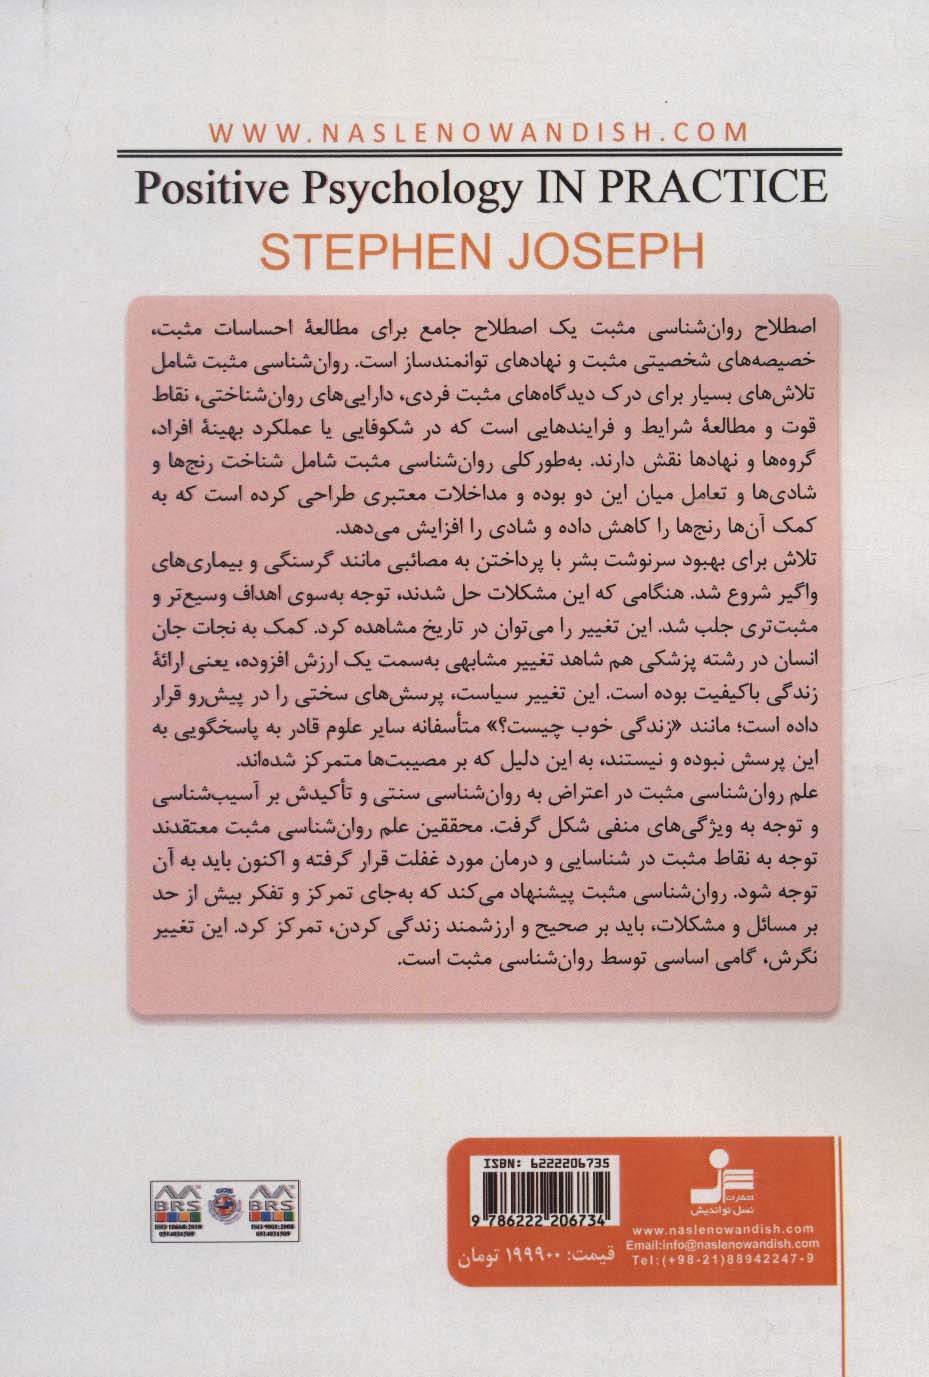 WWW.NASLENOWANDISH.COM
Positive Psychology IN PRACTICE
STEPHEN JOSEPH
اصطلاح روان‌شناسی مثبت یک اصطلاح جامع برای مطالعهٔ احساسات مثبت،
خصیصه‌های شخصیتی مثبت و نهادهای توانمندساز است. روان‌شناسی مثبت شامل
تلاش‌های بسیار برای درک دیدگاه‌های مثبت فردی، دارایی‌های روان‌شناختی، نقاط
قوت و مطالعهٔ شرایط و فرایندهایی است که در شکوفایی یا عملکرد بهینهٔ افراد،
گروه‌ها و نهادها نقش دارند. به‌طورکلی روان‌شناسی مثبت شامل شناخت رنج‌ها و
شادی‌ها و تعامل میان این دو بوده و مداخلات معتبری طراحی کرده است که به
کمک آن‌ها رنج‌ها را کاهش داده و شادی را افزایش می‌دهد.
تلاش برای بهبود سرنوشت بشر با پرداختن به مصائبی مانند گرسنگی و بیماری‌های
واگیر شروع شد. هنگامی که این مشکلات حل شدند، توجه به‌سوی اهداف وسیع‌تر و
مثبت‌تری جلب شد. این تغییر را می‌توان در تاریخ مشاهده کرد. کمک به نجات جان
انسان در رشته پزشکی هم شاهد تغییر مشابهی به‌سمت یک ارزش افزوده، یعنی ارائهٔ
زندگی باکیفیت بوده است. این تغییر سیاست، پرسش‌های سختی را در پیش‌رو قرار
داده است؛ مانند «زندگی خوب چیست؟» متأسفانه سایر علوم قادر به پاسخگویی به
این پرسش نبوده و نیستند، به این دلیل که بر مصیبت‌ها متمرکز شده‌اند.
علم روان‌شناسی مثبت در اعتراض به روان‌شناسی سنتی و تأکیدش بر آسیب‌شناسی
و توجه به ویژگی‌های منفی شکل گرفت. محققین علم روان‌شناسی مثبت معتقدند
توجه به نقاط مثبت در شناسایی و درمان مورد غفلت قرار گرفته و اکنون باید به آن
توجه شود. روان‌شناسی مثبت پیشنهاد می‌کند که به‌جای تمرکز و تفکر بیش از حد
بر مسائل و مشکلات، باید بر صحیح و ارزشمند زندگی کردن، تمرکز کرد. این تغییر
نگرش، گامی اساسی توسط روان‌شناسی مثبت است.
انتشارات
نسل نواندیش
www.naslenowandish.com
Email:info@naslenowandish.com
Tel:(+98-21)88942247-9
ISBN: 6222206735
9 786222 206734
قیمت: ۱۹۹۹۰۰ تومان
BRS
BRS
ISO 9001:2008